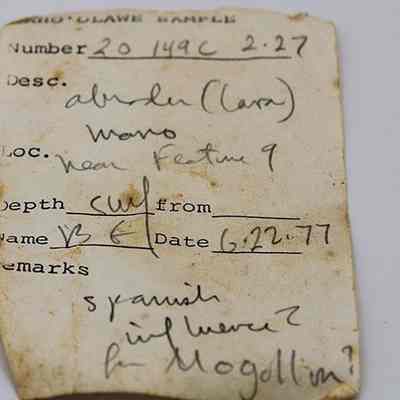 SAMPLE
Number 20 149C 2.27
Desc.
abrader (lava)
mano
Loc. near Feature 9
Depth surf from
Name VB E Date 6.22.77
emarks
spanish
influence?
for Mogollon?